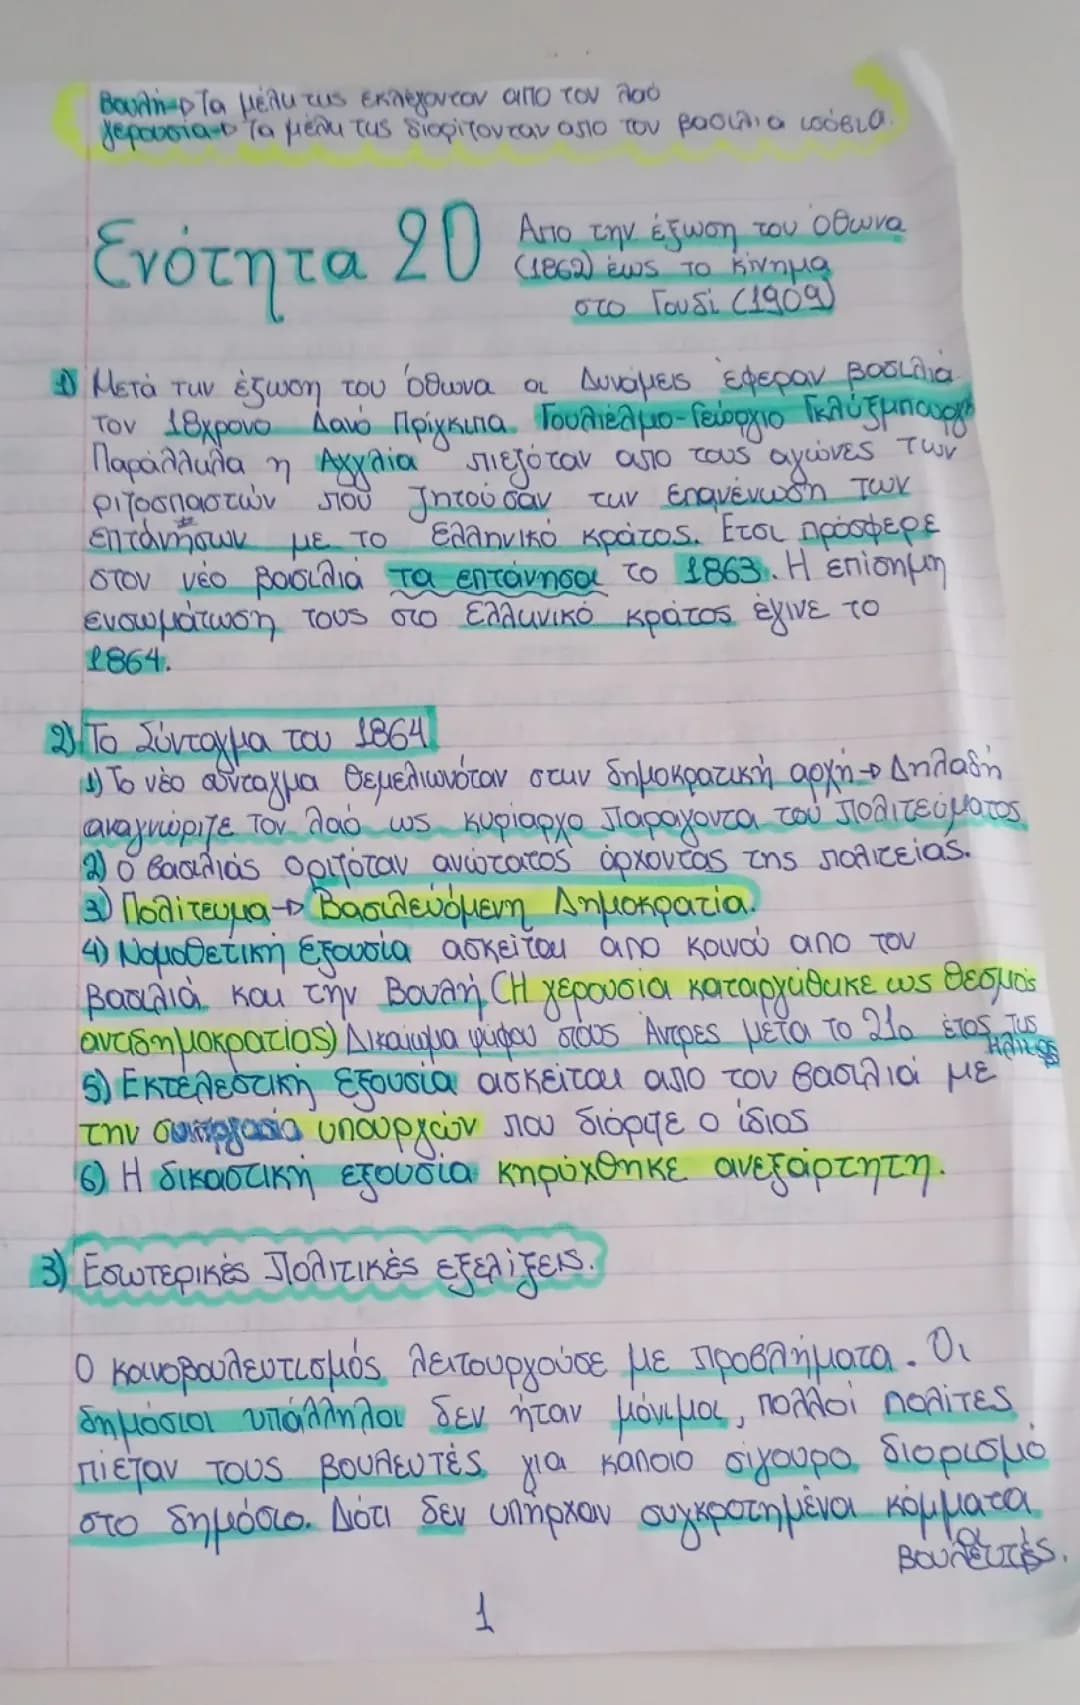 Βουλή → Τα μέλη της εκλέγονταν απο τον λαό
Γερουσία → Τα μέλη της διορίζονταν απο τον βασιλιά ισόβια.
Ενότητα 20
Απο την έξωση του Όθωνα
(1862) έως το κίνημα
στο Γουδί (1909)
1) Μετά την έξωση του Όθωνα οι Δυνάμεις έφεραν βασιλιά
τον 18χρονο Δανό Πρίγκιπα Γουλιέλμο-Γεώργιο Γκλύξμπουργκ
Παράλληλα η Αγγλία πιεζόταν απο τους αγώνες των
ριζοσπαστών που ζητούσαν την επανένωση των
επτανήσων με το Ελληνικό κράτος. Ετσι πρόσφερε
στον νέο βασιλιά τα επτάνησα το 1863. Η επίσημη
ενσωμάτωση τους στο Ελληνικό κράτος έγινε το
1864.
2) Το Σύνταγμα του 1864
1) Το νέο σύνταγμα θεμελιωνόταν στην δημοκρατική αρχή → Δηλαδή
αναγνώριζε τον λαό ως κυρίαρχο παράγοντα του πολιτεύματος
2) Ο βασιλιάς οριζόταν ανώτατος άρχοντας της πολιτείας.
3) Πολίτευμα → Βασιλευόμενη Δημοκρατία.
4) Νομοθετική εξουσία ασκείται απο κοινού απο τον
βασιλιά και την Βουλή (Η γερουσία καταργήθηκε ως θεσμός
αντιδημοκρατίας) Δικαίωμα ψήφου στους Άντρες μετα το 21ο έτος της
ηλικίας
5) Εκτελεστική εξουσία ασκείται απο τον βασιλιά με
την συνεργασία υπουργών που διόριζε ο ίδιος
6) Η δικαστική εξουσία κηρύχθηκε ανεξάρτητη.
3) Εσωτερικές Πολιτικές εξελίξεις.
Ο κοινοβουλευτισμός λειτουργούσε με προβλήματα. Οι
δημόσιοι υπάλληλοι δεν ήταν μόνιμοι, πολλοί πολίτες
πίεζαν τους βουλευτές για κάποιο σίγουρο διορισμό
στο δημόσιο. Διότι δεν υπήρχαν συγκροτημένα κόμματα
οι
βουλευτές.
1